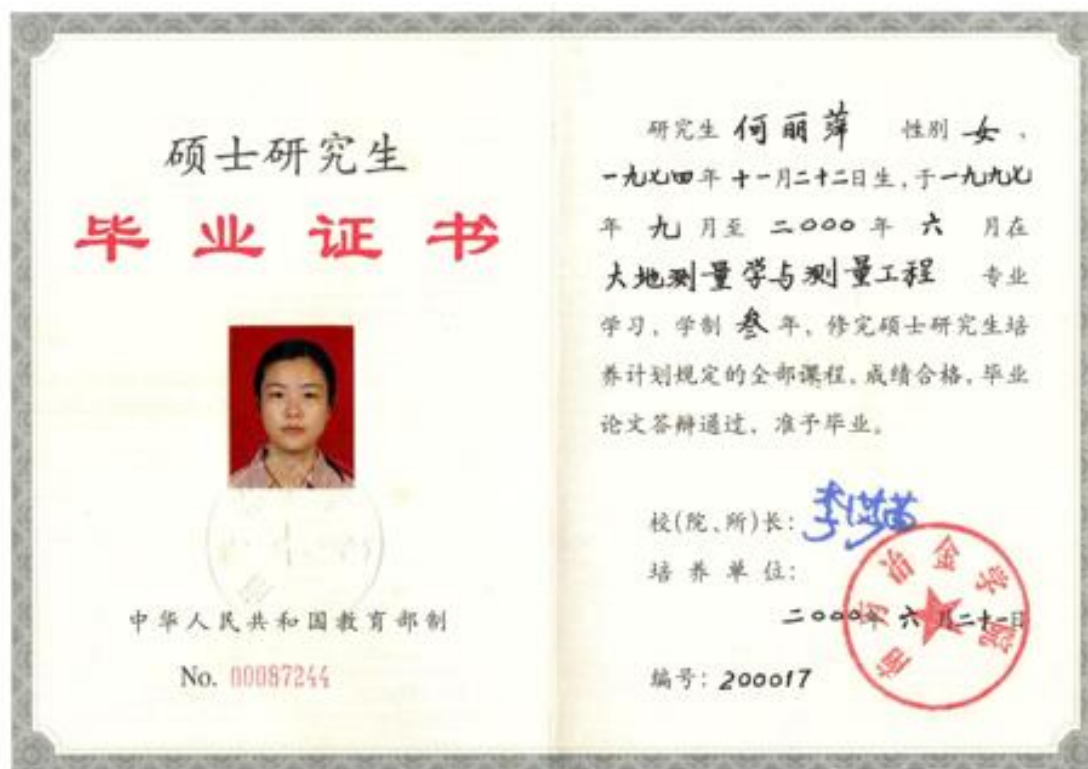 硕士研究生
毕业证书
中华人民共和国教育部制
No. 00087244
研究生 何丽萍 性别 女，
一九七四年十一月二十二日生，于一九九七
年 九 月至 二000 年 六 月在
大地测量学与测量工程 专业
学习，学制 叁 年，修完硕士研究生培
养计划规定的全部课程，成绩合格，毕业
论文答辩通过，准予毕业。
校(院、所)长：
培养单位：
南方冶金学院
二000年 六 月二十一日
编号：200017